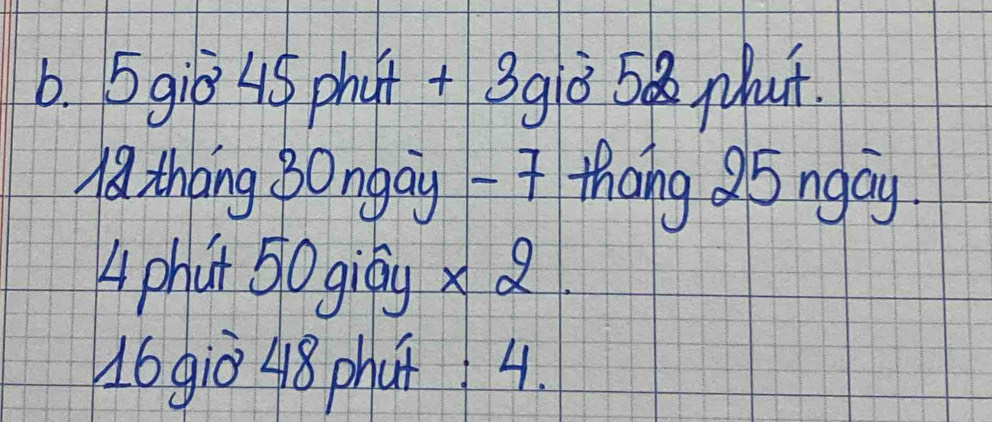 b. 5 giờ 45 phút + 3 giờ 52 phút.
12 tháng 30 ngày - 7 tháng 25 ngày.
4 phút 50 giây x 2.
16 giờ 48 phút : 4.